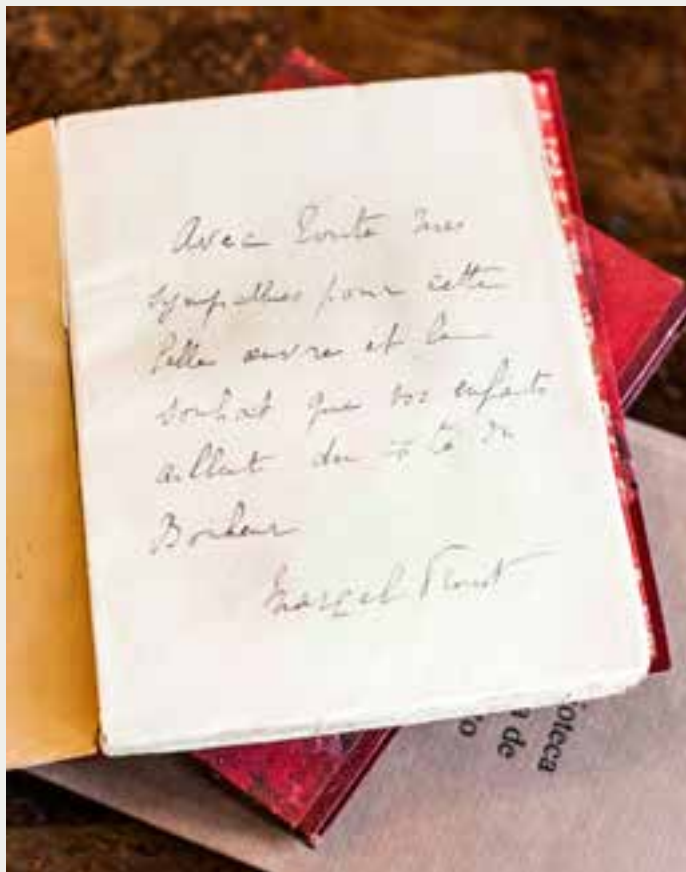 Avec toute mes
sympathies pour cette
belle œuvre et le
souhait que vos enfants
aillent du côté du
Bonheur
Marcel Proust
ioteca
a de
to